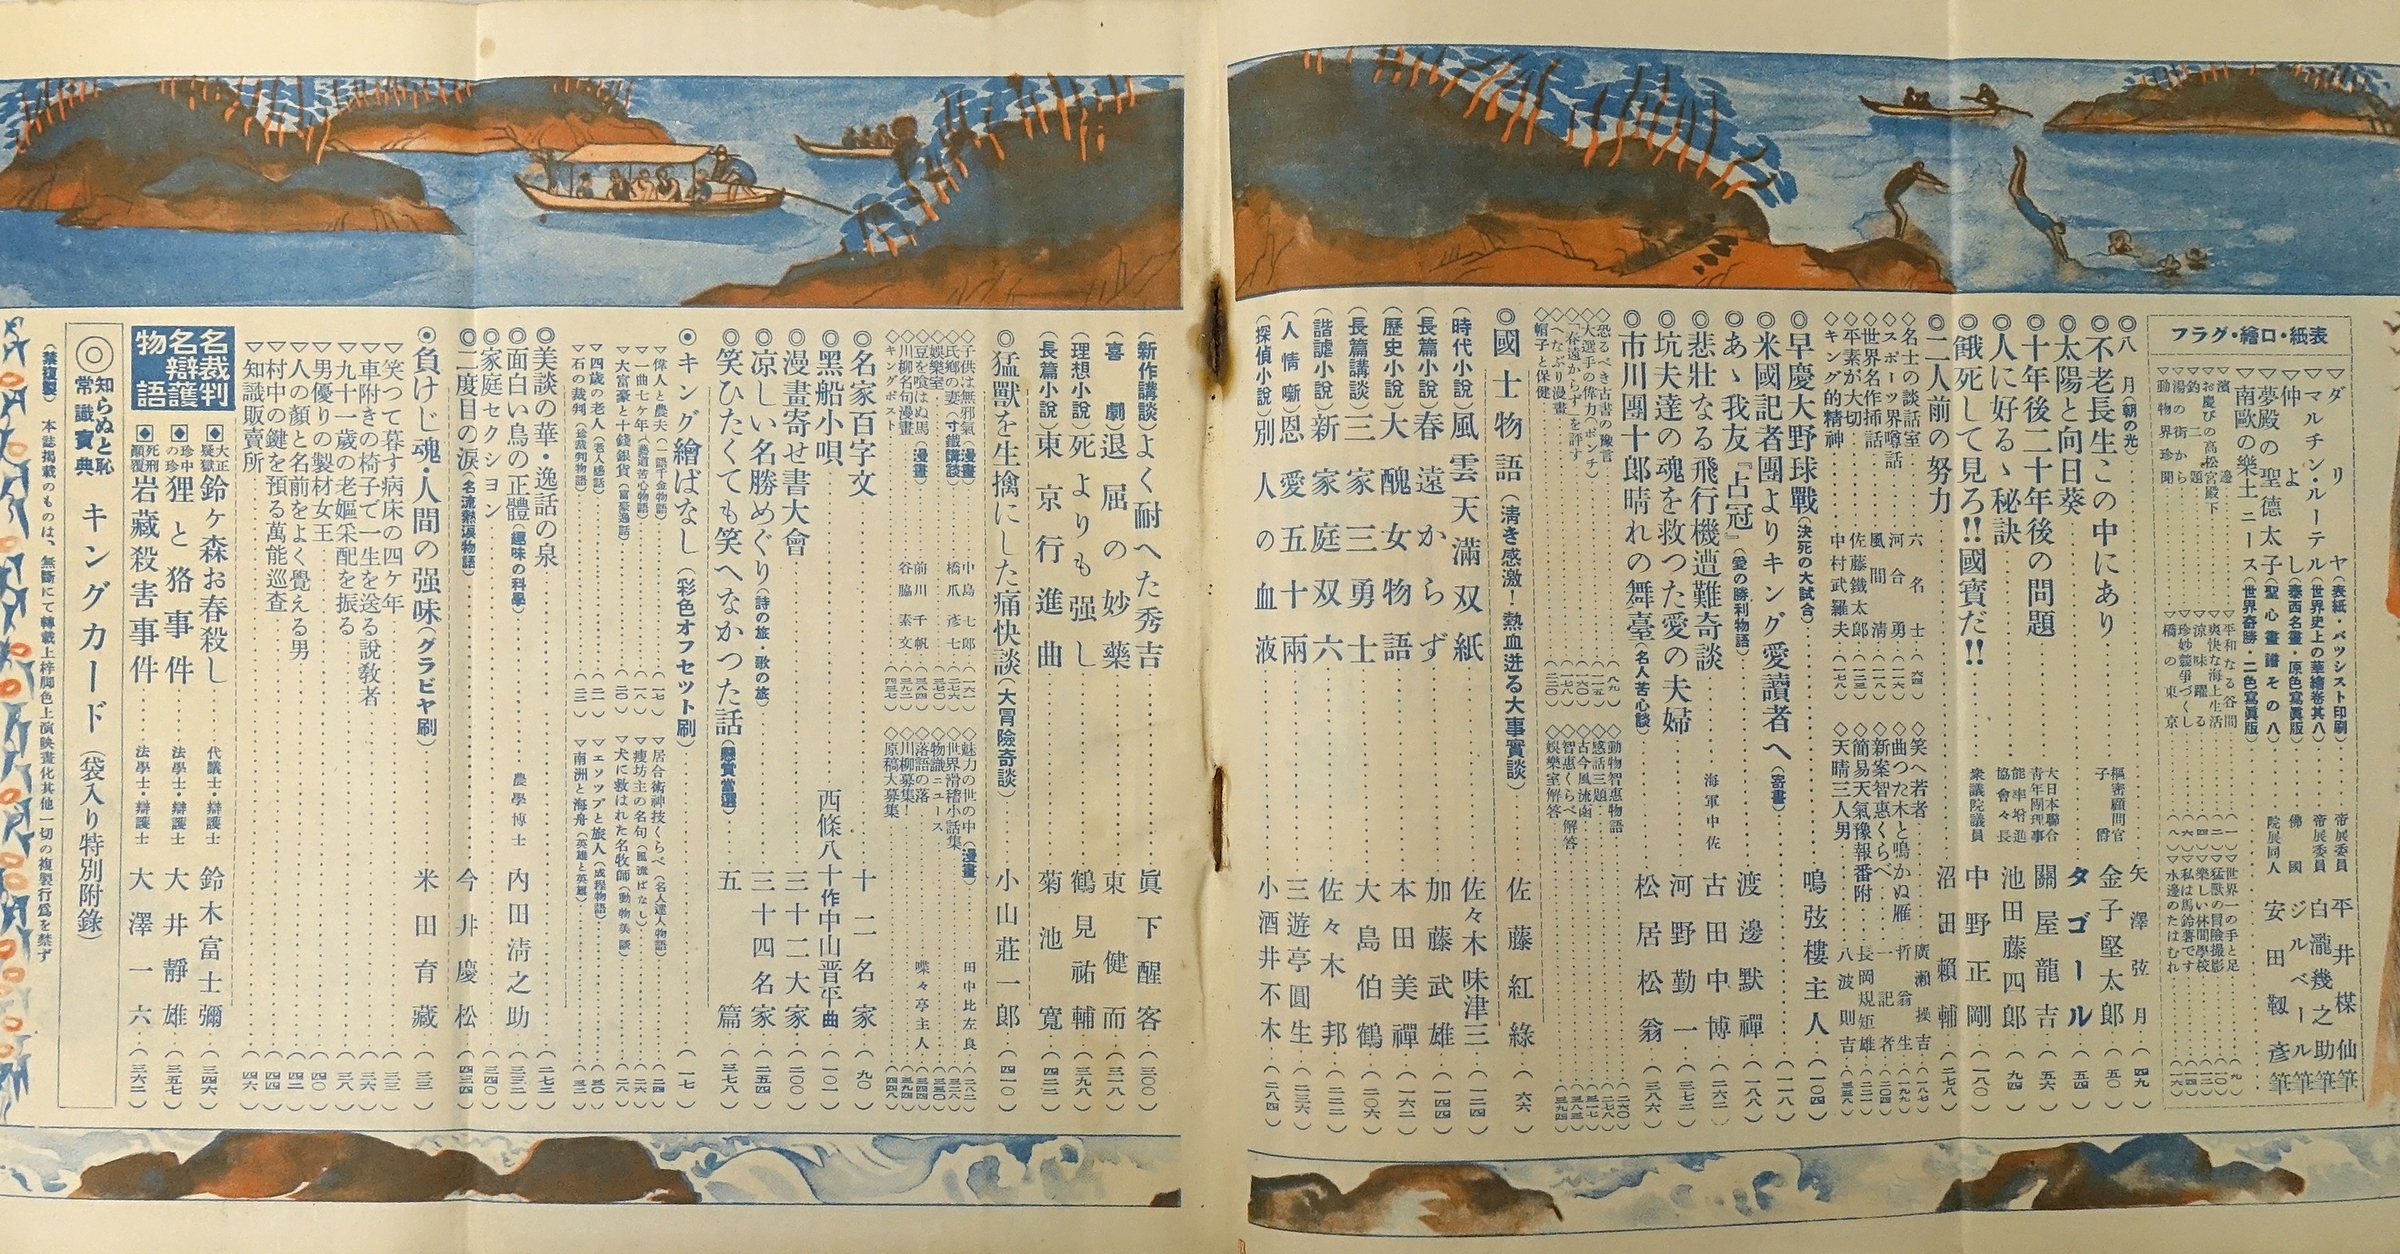 表紙・口繪・グラフ
▽ダリヤ(表紙・パツシスト印刷)……帝展委員 平井楳仙筆
▽マルチン・ルーテル(世界史上の華繪卷其八)……帝展委員 白瀧幾之助筆
▽仲よし(泰西名畫・原色寫眞版)……佛國 ジルベール筆
▽夢殿の聖德太子(聖心畫譜その八)……院展同人 安田靫彥筆
▽南歐の樂士ニース(世界奇勝・二色寫眞版)
▽濱邊
▽お慶びの高松宮殿下
▽釣二題
▽湯の街から
▽動物界珍聞
▽平和なる谷間……(一)
▽爽快な海上生活……(二)
▽涼味躍る……(四)
▽珍妙競爭づくし……(六)
▽橋の東京……(八)
▽世界一の手と足……(九)
▽猛獸の冒險撮影……(一〇)
▽樂しい林間學校……(一二)
▽私は馬鈴薯です……(一四)
▽水邊のたはむれ……(一六)
◎八月(朝の光)……矢澤弦月…(四九)
◎不老長生この中にあり……樞密顧問官 子爵 金子堅太郎…(五〇)
◎太陽と向日葵……タゴール…(五四)
◎十年後二十年後の問題……大日本聯合青年團理事 關屋龍吉…(五六)
◎人に好るゝ秘訣……能率增進協會々長 池田藤四郎…(九四)
◎餓死して見ろ!!國寶だ!!……衆議院議員 中野正剛…(一八〇)
◎二人前の努力……沼田賴輔…(二七八)
◇名士の談話室……六名士…(六四)
◇スポーツ界噂話……河合勇…(一一六)
◇世界名作揷話……風間淸…(一一八)
◇平素が大切……佐藤鐵太郎…(一二三)
◇キング的精神……中村武羅夫…(一七八)
◇笑へ若者……廣瀨操吉…(一八七)
◇曲つた木と鳴かぬ雁……哲翁生…(一九九)
◇新案智惠くらべ……一記者…(二〇四)
◇簡易天氣豫報番附……長岡規矩雄…(二二一)
◇天晴三人男……八波則吉…(三五八)
◎早慶大野球戰(決死の大試合)……鳴弦樓主人…(一〇四)
◎米國記者團よりキング愛讀者へ(寄書)……(一一八)
◎あゝ我友『占冠』(愛の勝利物語)……渡邊默禪…(一八八)
◎悲壯なる飛行機遭難奇談……海軍中佐 古田中博…(二六二)
◎坑夫達の魂を救つた愛の夫婦……河野勤一…(三七二)
◎市川團十郎晴れの舞臺(名人苦心談)……松居松翁…(三八六)
◇恐るべき古書の豫言……(八九)
◇大選手の偉力(ポンチ)……(一一五)
◇「春遠からず」を評す……(一六〇)
◇へなぶり漫畫……(一七八)
◇帽子と保健……(二二〇)
◇動物智惠物語……(二六〇)
◇感話三題……(二七八)
◇古今風流函……(三一七)
◇智惠くらべ解答……(三八三)
◇娛樂室解答……(三九四)
◎國士物語(淸き感激!熱血迸る大事實談)……佐藤紅綠…(六六)
(時代小說)風雲天滿双紙……佐々木味津三…(一二四)
(長篇小說)春遠からず……加藤武雄…(一四四)
(歷史小說)大醜女物語……本田美禪…(一六二)
(長篇講談)三家三勇士……大島伯鶴…(二〇六)
(諧謔小說)新家庭双六……佐々木邦…(二二二)
(人情噺)恩愛五十兩……三遊亭圓生…(二三六)
(探偵小說)別人の血液……小酒井不木…(二八四)
(新作講談)よく耐へた秀吉……眞下醒客…(三〇〇)
(喜劇)退屈の妙藥……東健而…(三一八)
(理想小說)死よりも强し……鶴見祐輔…(三九八)
(長篇小說)東京行進曲……菊池寬…(四二二)
◎猛獸を生擒にした痛快談(大冒險奇談)……小山莊一郎…(四一〇)
◇子供は無邪氣(漫畫)……中島七郎…(一六一)
◇氏鄕の妻(寸鐵講談)……橋爪彥七…(二七六)
◇娛樂室……(三七〇)
◇豆を喰はぬ馬(漫畫)……前川千帆…(三八四)
◇川柳名句漫畫……谷脇素文…(三九二)
◇キングポスト……(四五三)
◇魅力の世の中(漫畫)……田中比左良…(二八二)
◇世界滑稽小話集……(三一八)
◇物識ニュース……(三五〇)
◇落語の落……喋々亭主人…(三四四)
◇川柳募集!……(三九四)
◇原稿大募集……(四四八)
◎名家百字文……十二名家…(九〇)
◎黑船小唄……西條八十作 中山晋平曲…(一〇一)
◎漫畫寄せ書大會……三十二大家…(二〇〇)
◎凉しい名勝めぐり(詩の旅・歌の旅)……三十四名家…(二五四)
◎笑ひたくても笑へなかつた話(懸賞當選)……五篇…(三七八)
◉キング繪ばなし(彩色オフセツト刷)……(一七)
▽偉人と農夫(一語千金物語)……(一七)
▽一曲七ケ年(藝道苦心物語)……(一八)
▽大富豪と十錢銀貨(富豪逸話)……(二〇)
▽四歲の老人(老人感話)……(二一)
▽石の裁判(珍裁判物語)……(二二)
▽居合術神技くらべ(名人達人物語)……(二四)
▽瘦坊主の名句(風流ばなし)……(二六)
▽犬に救はれた名牧師(動物美談)……(二八)
▽エソツプと旅人(成程物語)……(三〇)
▽南洲と海舟(英雄と英雄)……(三二)
◎美談の華・逸話の泉……(二七二)
◎面白い鳥の正體(趣味の科學)……農學博士 內田淸之助…(三三二)
◎家庭セクション……(三四〇)
◎二度目の淚(名流熱淚物語)……今井慶松…(四三四)
◉負けじ魂・人間の强味(グラビヤ刷)……米田育藏…(三三)
▽笑つて暮す病床の四ケ年……(三三)
▽車附きの椅子で一生を送る說敎者……(三六)
▽九十一歲の老嫗采配を振る……(三八)
▽男優りの製材女王……(四〇)
▽人の顏と名前をよく覺える男……(四二)
▽村中の鍵を預る萬能巡査……(四四)
▽知識販賣所……(四六)
名裁判名辯護物語
大正疑獄 鈴ヶ森お春殺し……代議士・辯護士 鈴木富士彌…(三四六)
珍中の珍 狸と狢事件……法學士・辯護士 大井靜雄…(三五七)
死刑顚覆 岩藏殺害事件……法學士・辯護士 大澤一六…(三六二)
◎知らぬと恥 常識寶典 キングカード(袋入り特別附錄)
(禁複製) 本誌揭載のものは、無斷にて轉載上梓脚色上演映畫化其他一切の複製行爲を禁ず